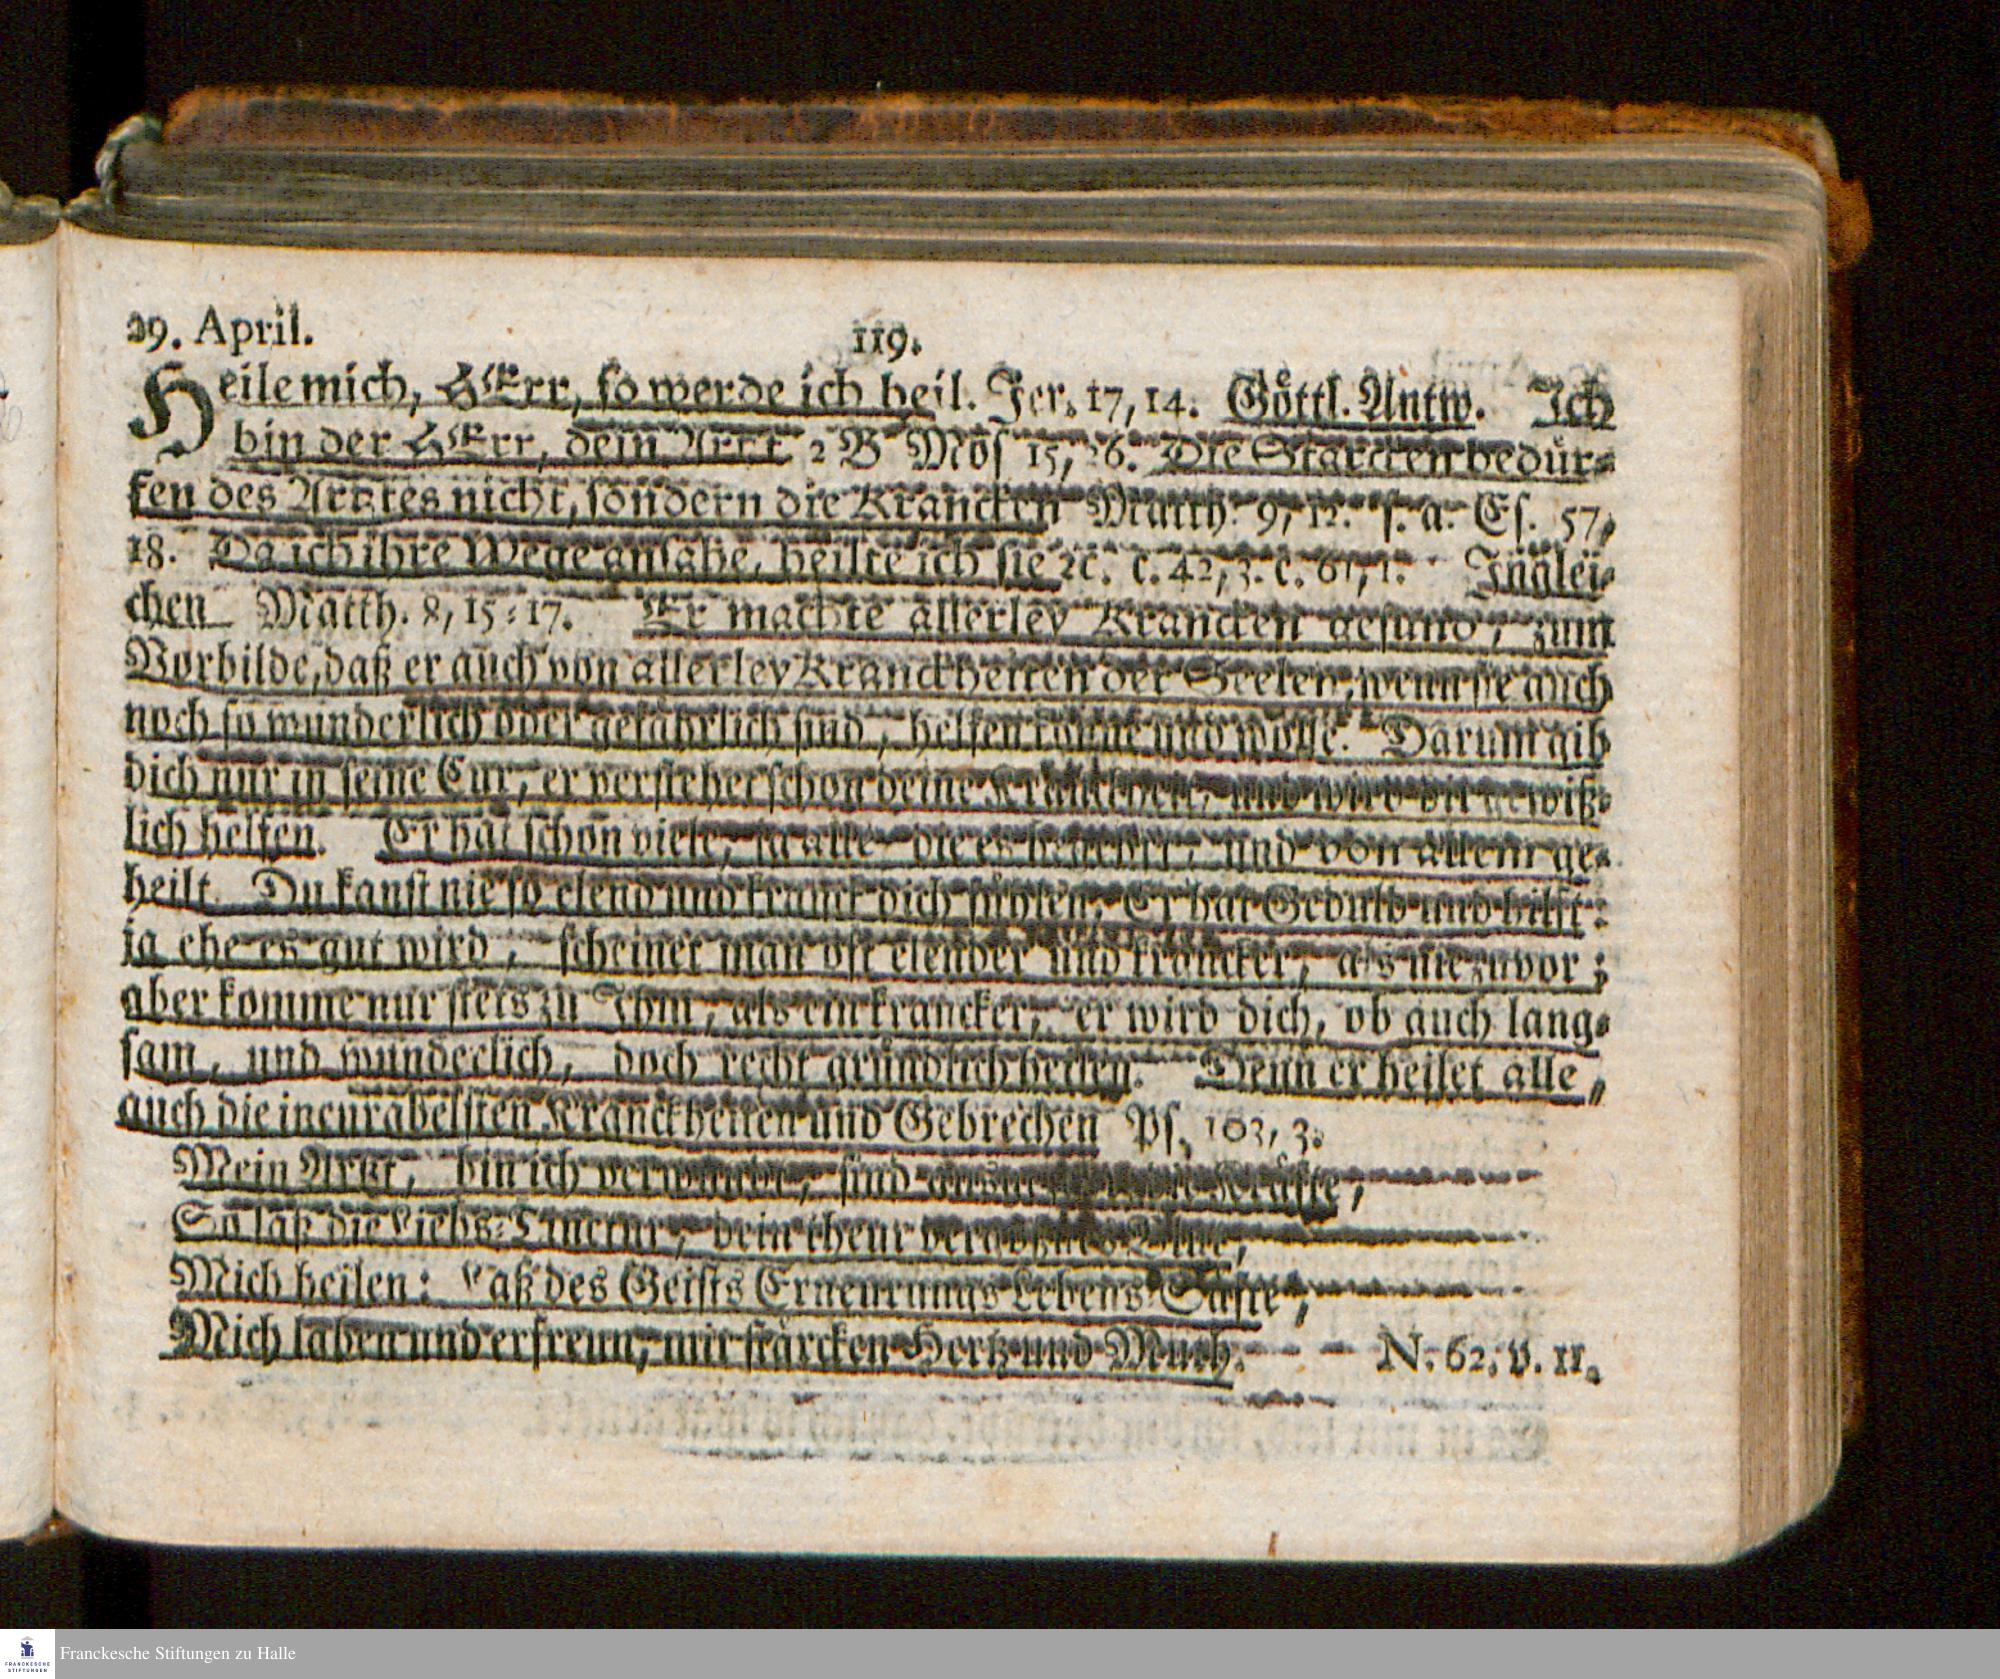 29. April. 119.
Heile mich, HErr, so werde ich heil. Jer. 17, 14. Göttl. Antw. Ich
bin der HErr, dein Artzt 2 B Mos 15, 26. Die Starcken bedür-
fen des Artztes nicht, sondern die Krancken Matth. 9, 12. s. a. Es. 57,
18. Da ich ihre Wege ansahe, heilte ich sie ꝛc. c. 42, 3. c. 61, 1. Inglei-
chen Matth. 8, 15-17. Er machte allerley Krancken gesund, zum
Vorbilde, daß er auch von allerley Kranckheiten der Seelen, wenn sie auch
noch so wunderlich oder gefährlich sind, helfen könne und wolle. Darum gib
dich nur in seine Cur, er verstehet schon deine Kranckheit, und wird dir gewiß-
lich helfen. Er hat schon viele, ja alle die es begehrt, und von allem ge-
heilt. Du kanst nie so elend und kranck dich fühlen, Er hat Gedult und hilft:
ja ehe es gut wird, scheinet man oft elender und kräncker, als nie zuvor;
aber komme nur stets zu Ihm, als ein krancker, er wird dich, ob auch lang-
sam, und wunderlich, doch recht gründlich heilen. Denn er heilet alle,
auch die incurabelsten Kranckheiten und Gebrechen Ps. 103, 3.
Mein Artzt, bin ich verwundt, sind Kräfte,
So laß die Liebs-Tinctur, dein theur Blut,
Mich heilen: Laß des Geists Erneurungs Lebens-Säfte,
Mich laben und erfreun, mir stärcken Hertz und Muth. N. 62. v. 11.
Franckesche Stiftungen zu Halle
FRANCKESCHE
STIFTUNGEN